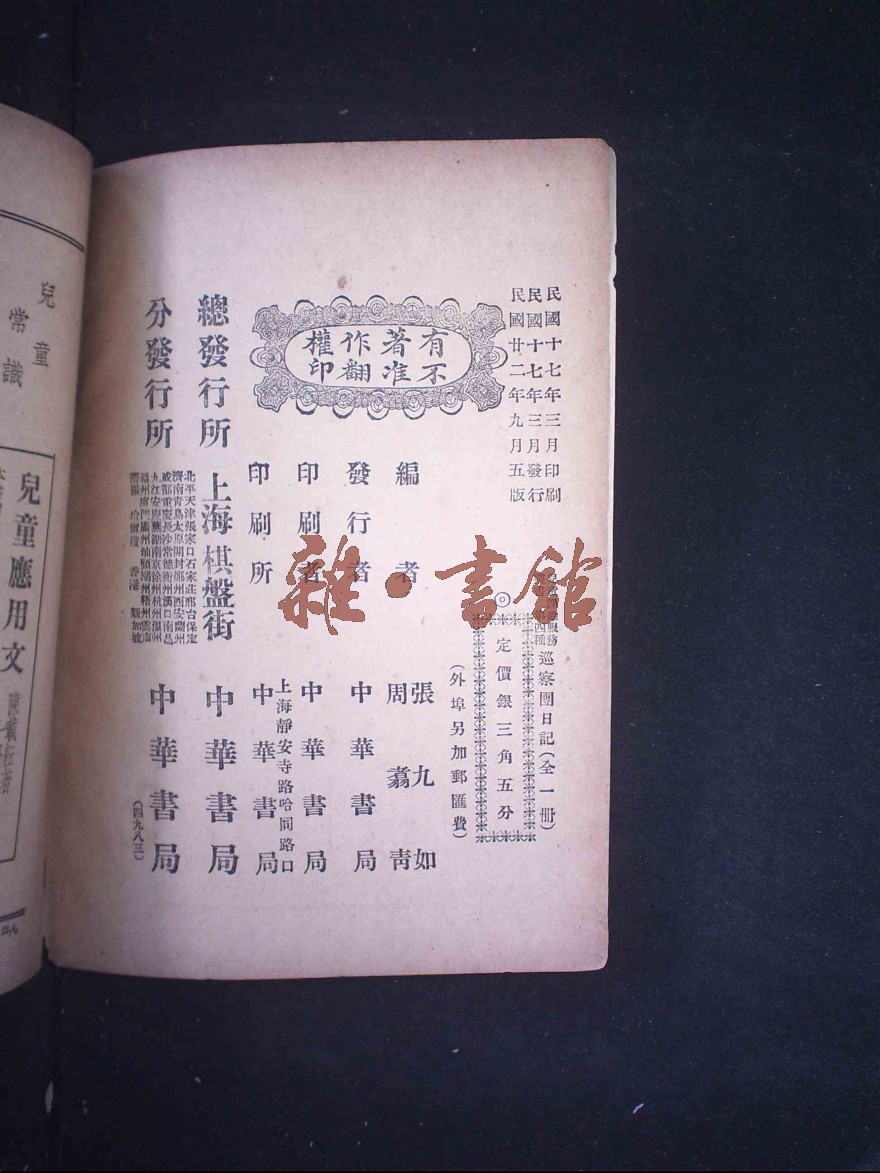 民國十七年三月印刷
民國十七年三月發行
民國廿二年九月五版
服務
四種
巡察團日記(全一册)
◎定價銀三角五分
(外埠另加郵匯費)
有著作權
不准翻印
編者
張九如
周翥靑
發行者 中華書局
印刷者 中華書局
上海靜安寺路哈同路口
印刷所 中華書局
總發行所 上海棋盤街 中華書局
分發行所
北平天津張家口石家莊邢台保定
濟南靑島太原開封鄭州西安蘭州
成都重慶長沙常德衡州漢口南昌
九江安慶蕪湖南京徐州杭州溫州
福州廈門廣州汕頭潮州梧州雲南
香港
中華書局
(四九八三)
兒童
常識
兒童應用文
雜·書館